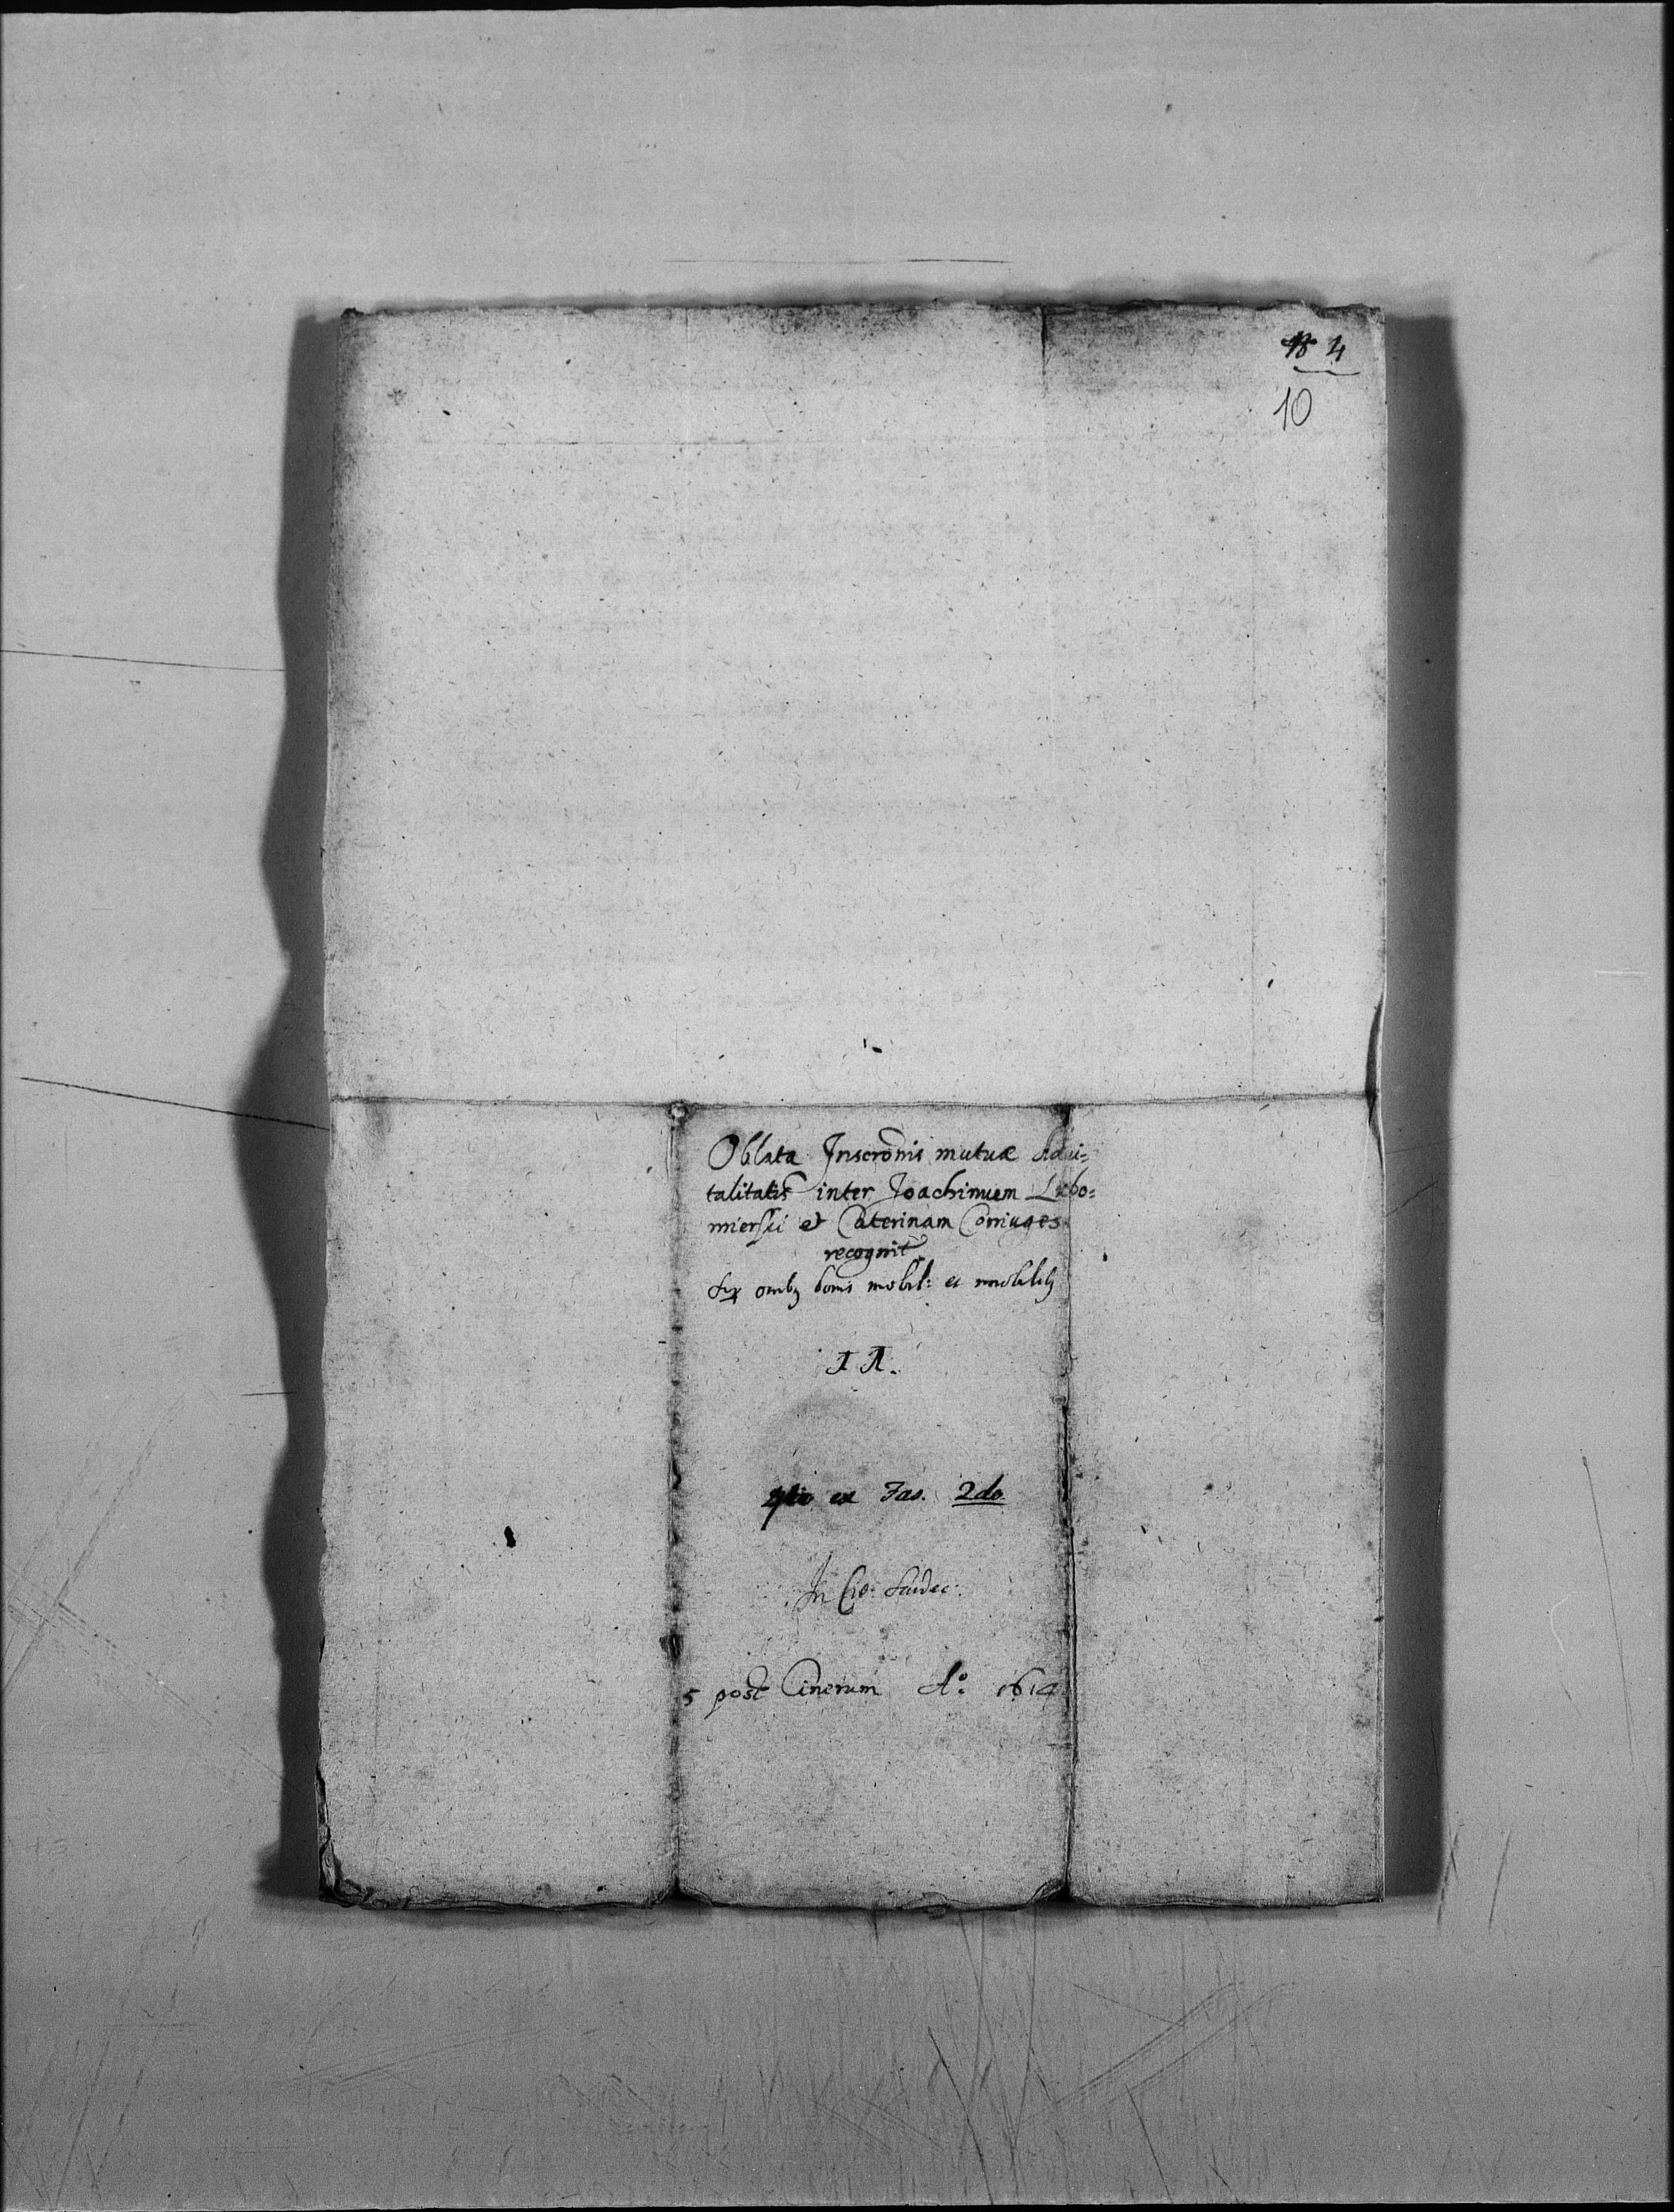 4
10
Oblata Inscrõnis mutuæ Advi=
talitatis inter Joachimum Lubo=
mierski et Caterinam Coniuges
recognit
sup omibz bonis mobil: et imobilibz
I A.
ex Fas. 2do
In C. Sandec:
5 post Cinerum Ao: 1614